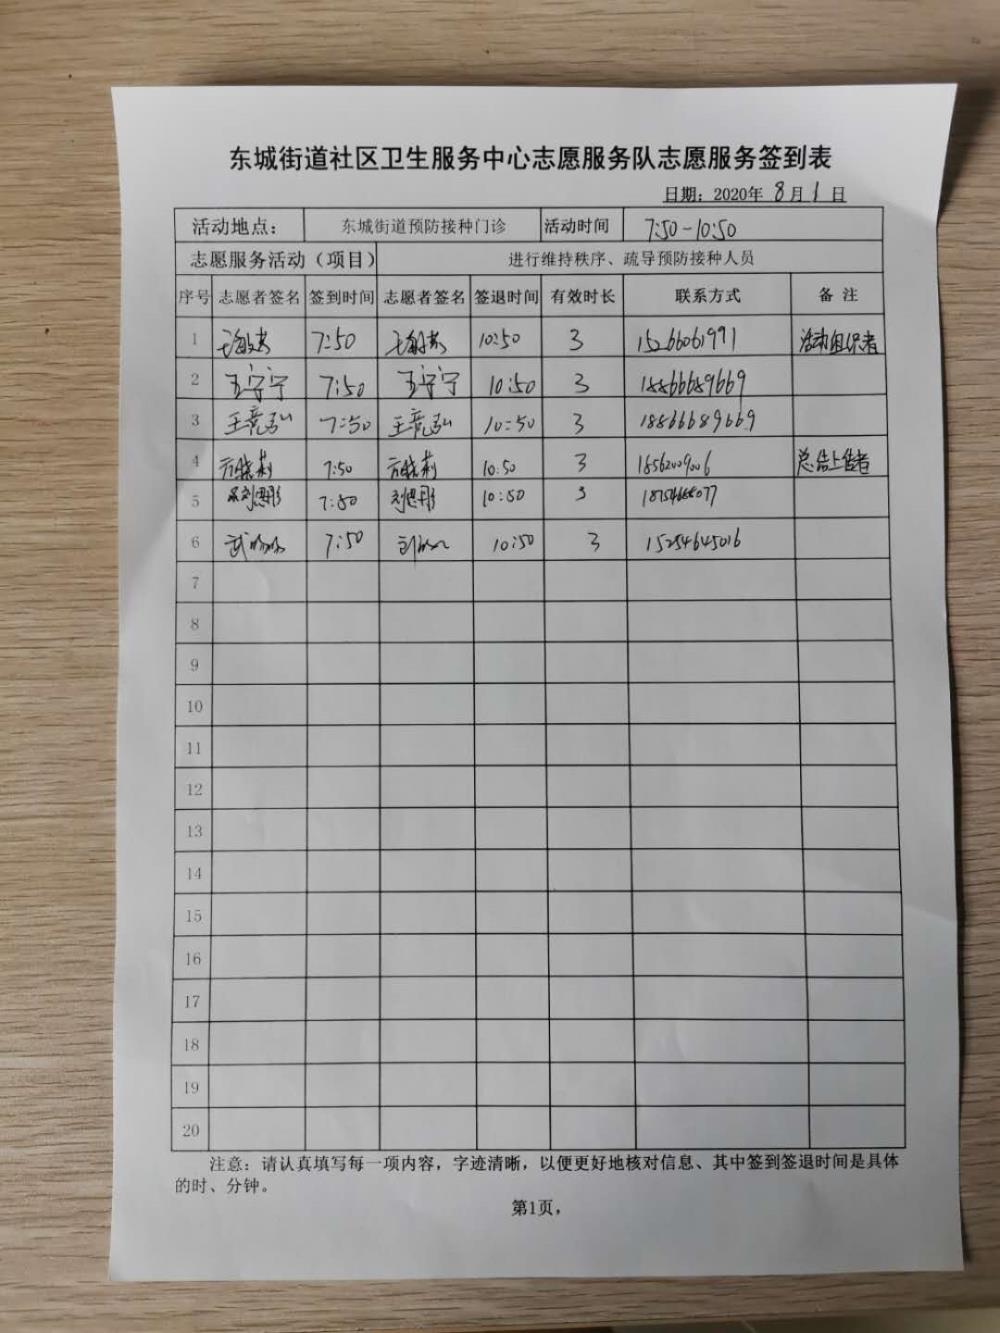 东城街道社区卫生服务中心志愿服务队志愿服务签到表
日期：2020年 8月 1日
活动地点： 东城街道预防接种门诊 活动时间 7:50-10:50
志愿服务活动（项目） 进行维持秩序、疏导预防接种人员
序号 志愿者签名 签到时间 志愿者签名 签退时间 有效时长 联系方式 备 注
1 7:50 10:50 3 15266061991 活动组织者
2 王宁宁 7:50 王宁宁 10:50 3 18866689669
3 王竞弘 7:50 王竞弘 10:50 3 18866689669
4 7:50 10:50 3 18562009006 总结上传者
5 刘恩彤 7:50 刘恩彤 10:50 3
6 7:50 10:50 3 15254645016
7
8
9
10
11
12
13
14
15
16
17
18
19
20
注意：请认真填写每一项内容，字迹清晰，以便更好地核对信息、其中签到签退时间是具体
的时、分钟。
第1页，